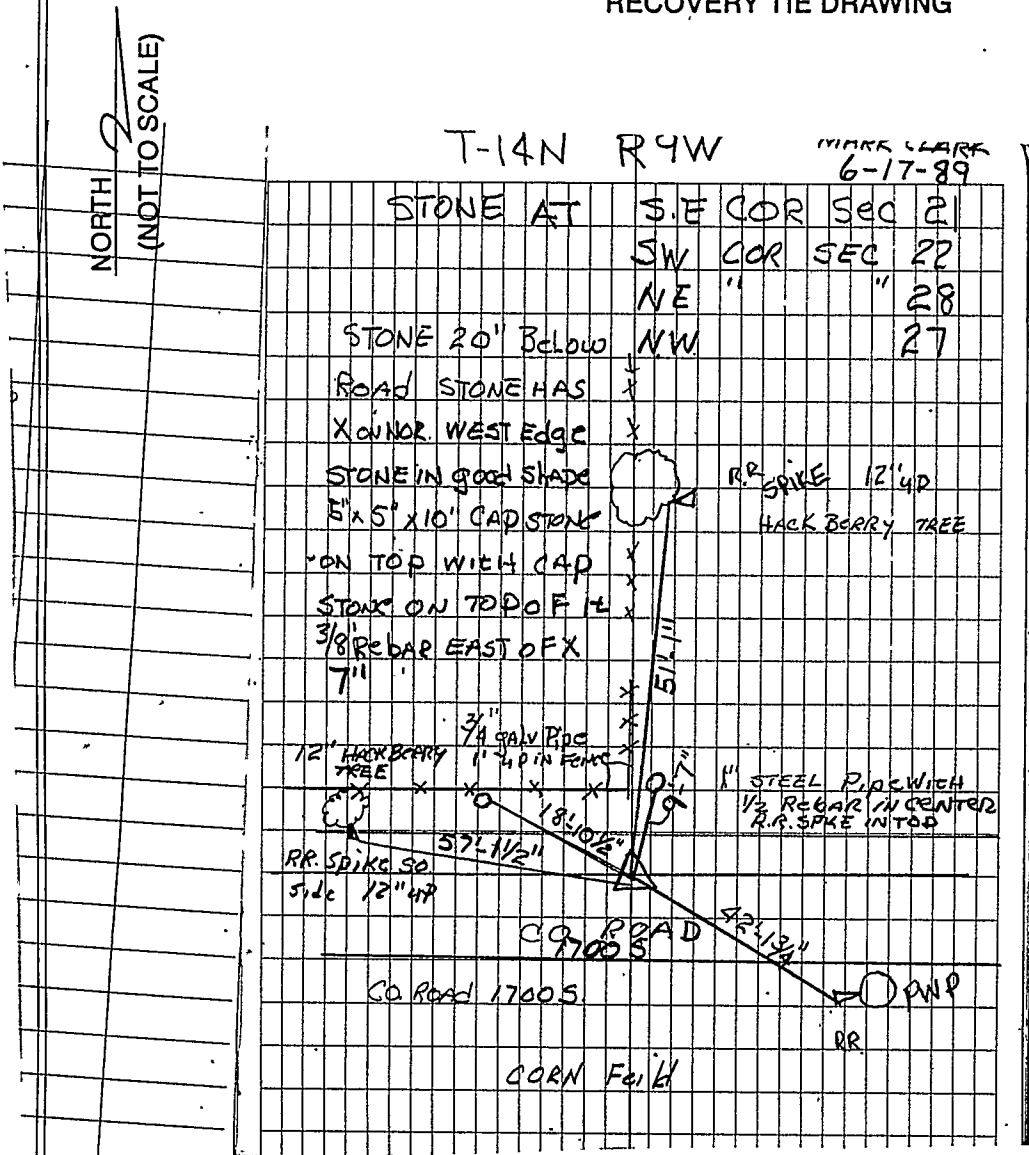 RECOVERY TIE DRAWING
NORTH
(NOT TO SCALE)
T-14N R9W
MARK CLARK
6-17-89
STONE AT S.E COR SEC 21
SW COR SEC 22
NE " " 28
NW 27
STONE 20" BeLow
ROAd STONE HAS
X ON NOR. WEST Edge
STONE IN good SHAPE
5" x 5" x 10' CAP STONE
ON TOP WITH CAP
STONE ON TOP OF It
3/8" RebAR EAST OF X
7"
R.R. SPIKE 12" UP
HACK BERRY TREE
51'-1"
3/4" gALV PIpe
1" UP IN FeNCe
12" HACKBERRY
TREE
9'-7"
1" STEEL PIpe WITH
1/2 RebAR IN CENTER
R.R. SPKE IN TOP
18'-10 1/2"
57'-1 1/2"
RR. SpiKe SO
Side 12" UP
42'-1 3/4"
CO. ROAD
1700 S
CO. ROAd 1700 S.
PWP
RR
CORN Feild